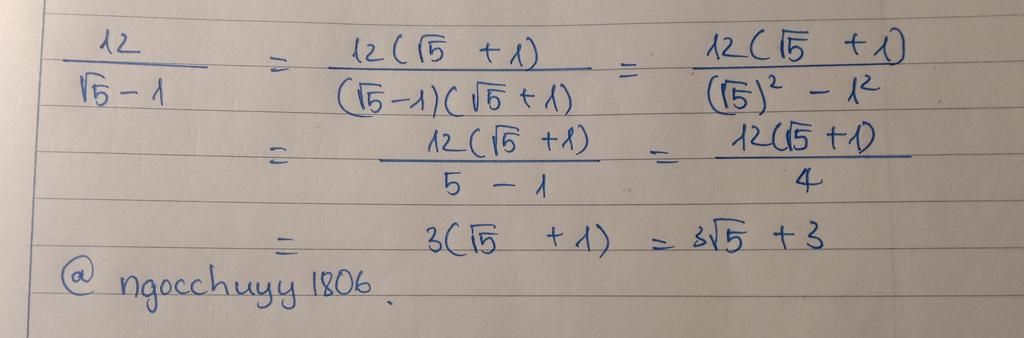 12/(√5 - 1) = 12(√5 + 1)/((√5-1)(√5+1)) = 12(√5 + 1)/((√5)² - 1²)
= 12(√5 +1)/(5 - 1) = 12(√5 + 1)/4
= 3(√5 + 1) = 3√5 + 3
@ ngocchuyy 1806.